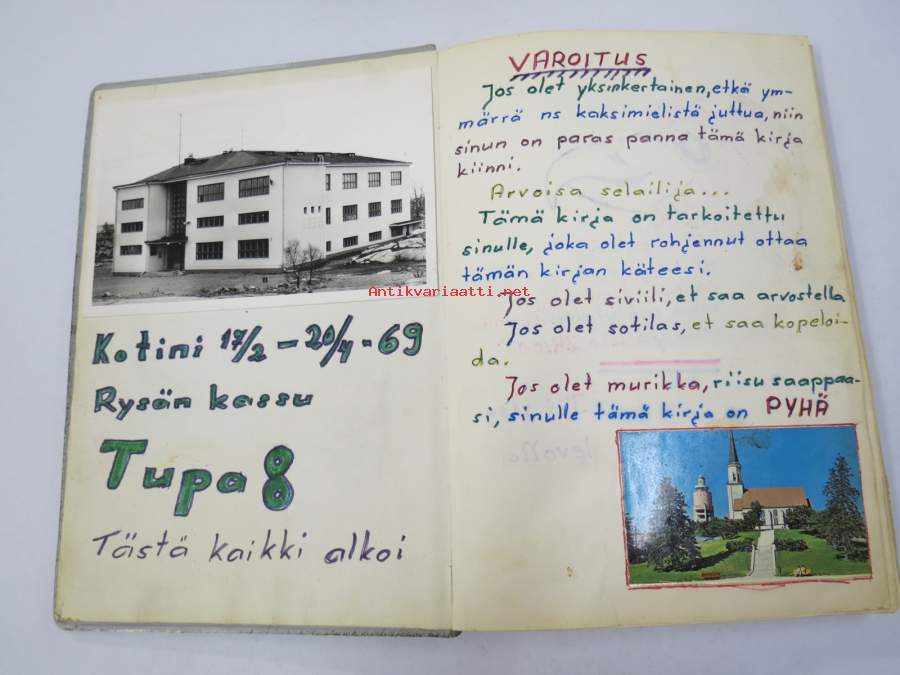 Kotini 17/2 - 20/4 - 69
Rysän kassu
Tupa 8
Tästä kaikki alkoi
VAROITUS
Jos olet yksinkertainen, etkä ym-
märrä ns kaksimielistä juttua, niin
sinun on paras panna tämä kirja
kiinni.
Arvoisa selailija...
Tämä kirja on tarkoitettu
sinulle, joka olet rohjennut ottaa
tämän kirjan käteesi.
Jos olet siviili, et saa arvostella
Jos olet sotilas, et saa kopeloi-
da.
Jos olet murikka, riisu saappaa-
si, sinulle tämä kirja on PYHÄ
Antikvariaatti.net